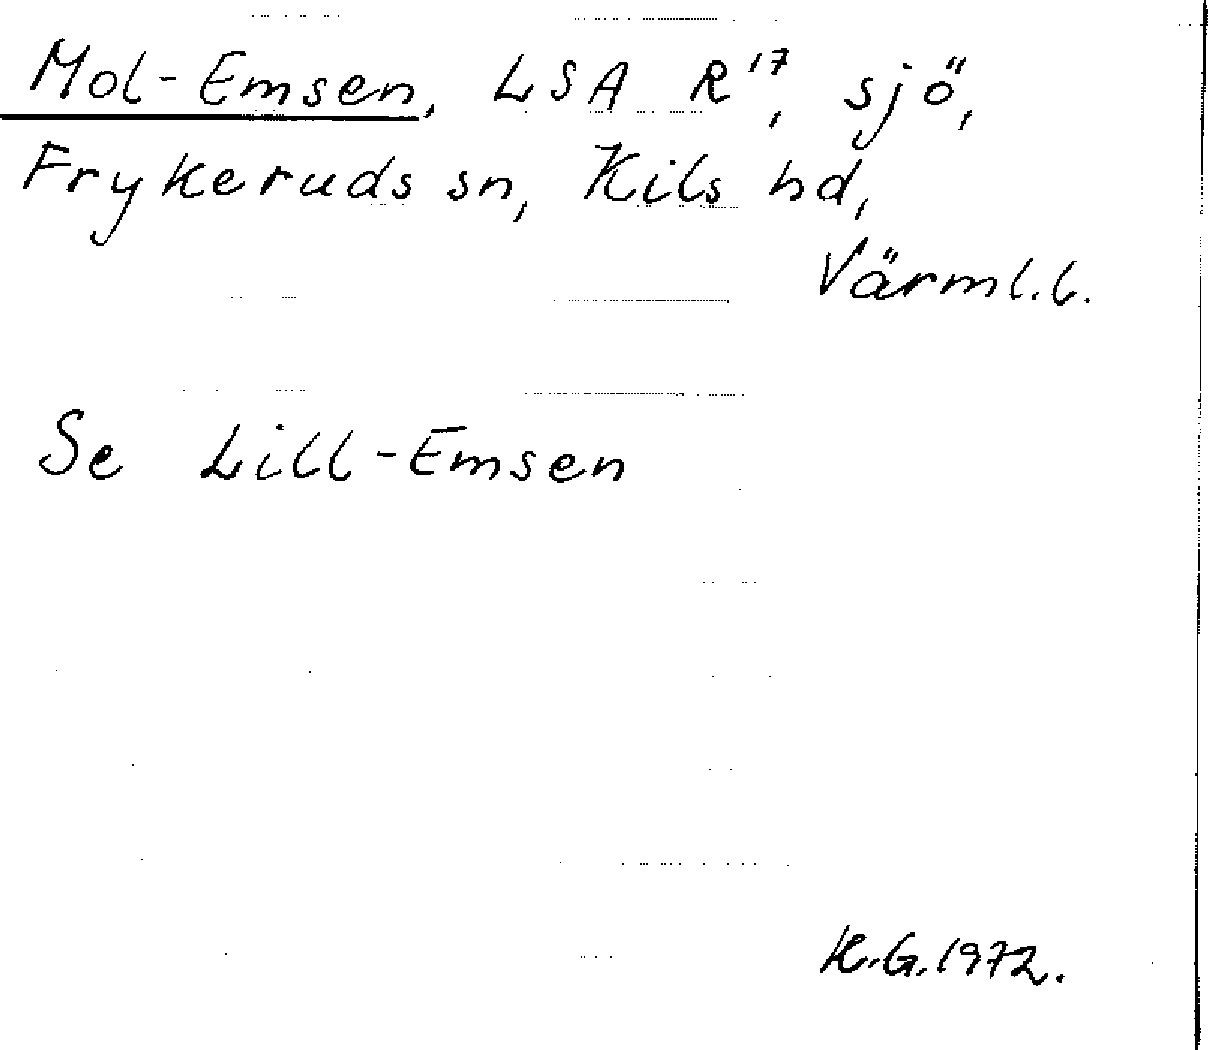 Mol-Emsen, LSA R¹⁷, sjö,
Frykeruds sn, Kils hd,
Värml.l.
Se Lill-Emsen
K.G.1972.